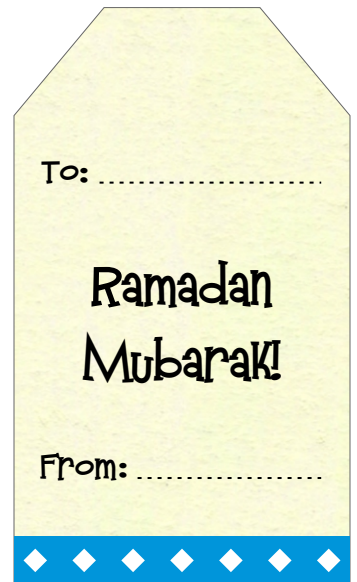 To:
Ramadan
Mubarak!
From: